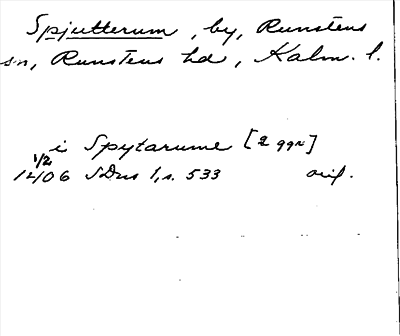 Spjutterum, by, Runstens
sn, Runstens hd, Kalm. l.
i Spytarume [2 ggr]
1/2 1406 SDns 1, s. 533 orig.